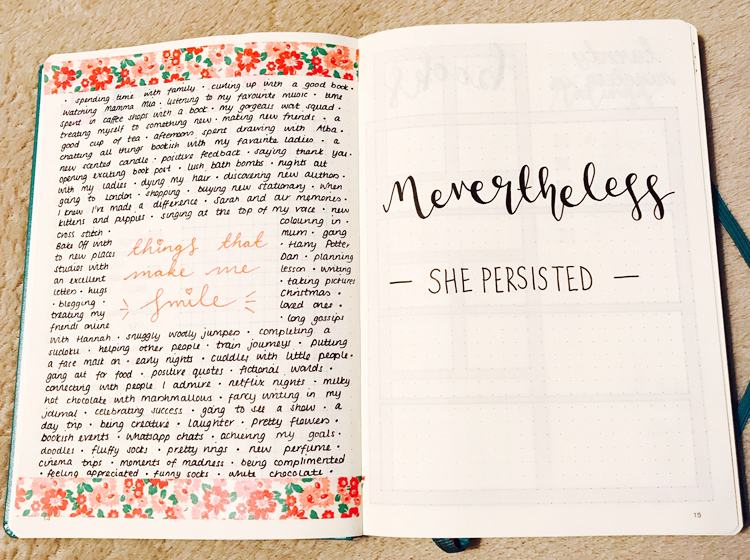 · spending time with family · curling up with a good book ·
watching Mamma Mia · listening to my favourite music · time
spent in coffee shops with a book · my gorgeous wat squad ·
treating myself to something new · making new friends · a
good cup of tea · afternoons spent drawing with Alba ·
chatting all things bookish with my favourite ladies · a
new scented candle · positive feedback · saying thank you ·
opening exciting book post · lush bath bombs · nights out
with my ladies · dying my hair · discovering new authors ·
going to London · shopping · buying new stationary · when
I know I've made a difference · Sarah and our memories ·
kittens and puppies · singing at the top of my voice · new
cross stitch · colouring in ·
Bake Off with mum · going
to new places · Harry Potter
studios with Dan · planning
an excellent lesson · writing
letters · hugs · taking pictures
· blogging · Christmas ·
treating my loved ones ·
friends online · long gossips
things that
make me
smile
with Hannah · snuggly woolly jumpers · completing a
sudoku · helping other people · train journeys · putting
a face mask on · early nights · cuddles with little people ·
going out for food · positive quotes · fictional worlds ·
connecting with people I admire · netflix nights · milky
hot chocolate with marshmallows · fancy writing in my
journal · celebrating success · going to see a show · a
day trip · being creative · laughter · pretty flowers ·
bookish events · whatsapp chats · achieving my goals ·
doodles · fluffy socks · pretty rings · new perfume ·
cinema trips · moments of madness · being complimented
· feeling appreciated · funny socks · white chocolate ·
Nevertheless
— SHE PERSISTED —
15